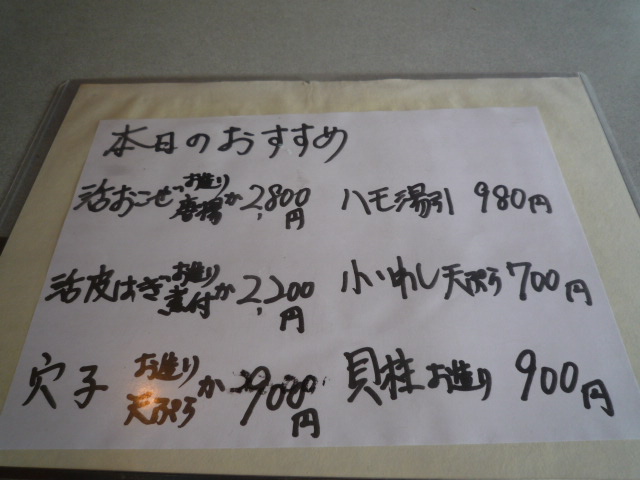 本日のおすすめ
活おこせ お造り 唐揚 か 2,800円
活皮はぎ お造り 煮付 か 2,200円
穴子 お造り 天ぷら か 900円
ハモ湯引 980円
小いわし天ぷら 700円
貝柱お造り 900円